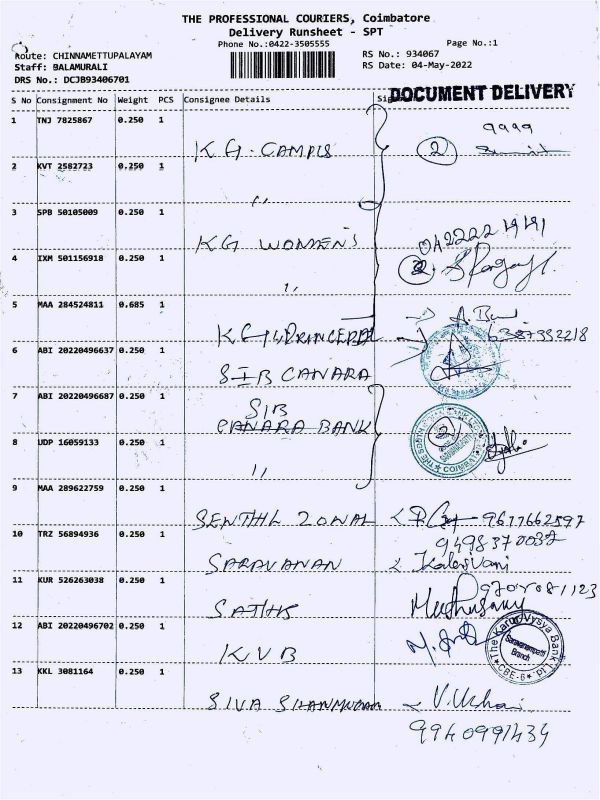 THE PROFESSIONAL COURIERS, Coimbatore
Delivery Runsheet - SPT
Phone No.:0422-3505555
Page No.:1
Route: CHINNAMETTUPALAYAM
RS No.: 934067
Staff: BALAMURALI
RS Date: 04-May-2022
DRS No.: DCJB93406701
DOCUMENT DELIVERY
S No Consignment No Weight PCS Consignee Details
1 TNJ 7825867 0.250 1
9999
KG. CAMPUS
2
2 KVT 2582723 0.250 1
,,
3 SPB 50105009 0.250 1
KG WOMEN'S
4 IXM 501156918 0.250 1
,,
5 MAA 284524811 0.685 1
6387992218
6 ABI 20220496637 0.250 1
SIB CANARA
7 ABI 20220496687 0.250 1
SIB
CANARA BANK
2
COIMBATORE
8 UDP 16059133 0.250 1
,,
9 MAA 289622759 0.250 1
SENTHIL ZONAL
9677662597
10 TRZ 56894936 0.250 1
9498370032
SARAVANAN
Kalaivani
11 KUR 526263038 0.250 1
SATHIS
Muthusamy
12 ABI 20220496702 0.250 1
KVB
The Karur Vysya Bank Ltd
Saravanampatti
Branch
CBE-6
13 KKL 3081164 0.250 1
SIVA SHANMUGAM
V. Usha
9940991434